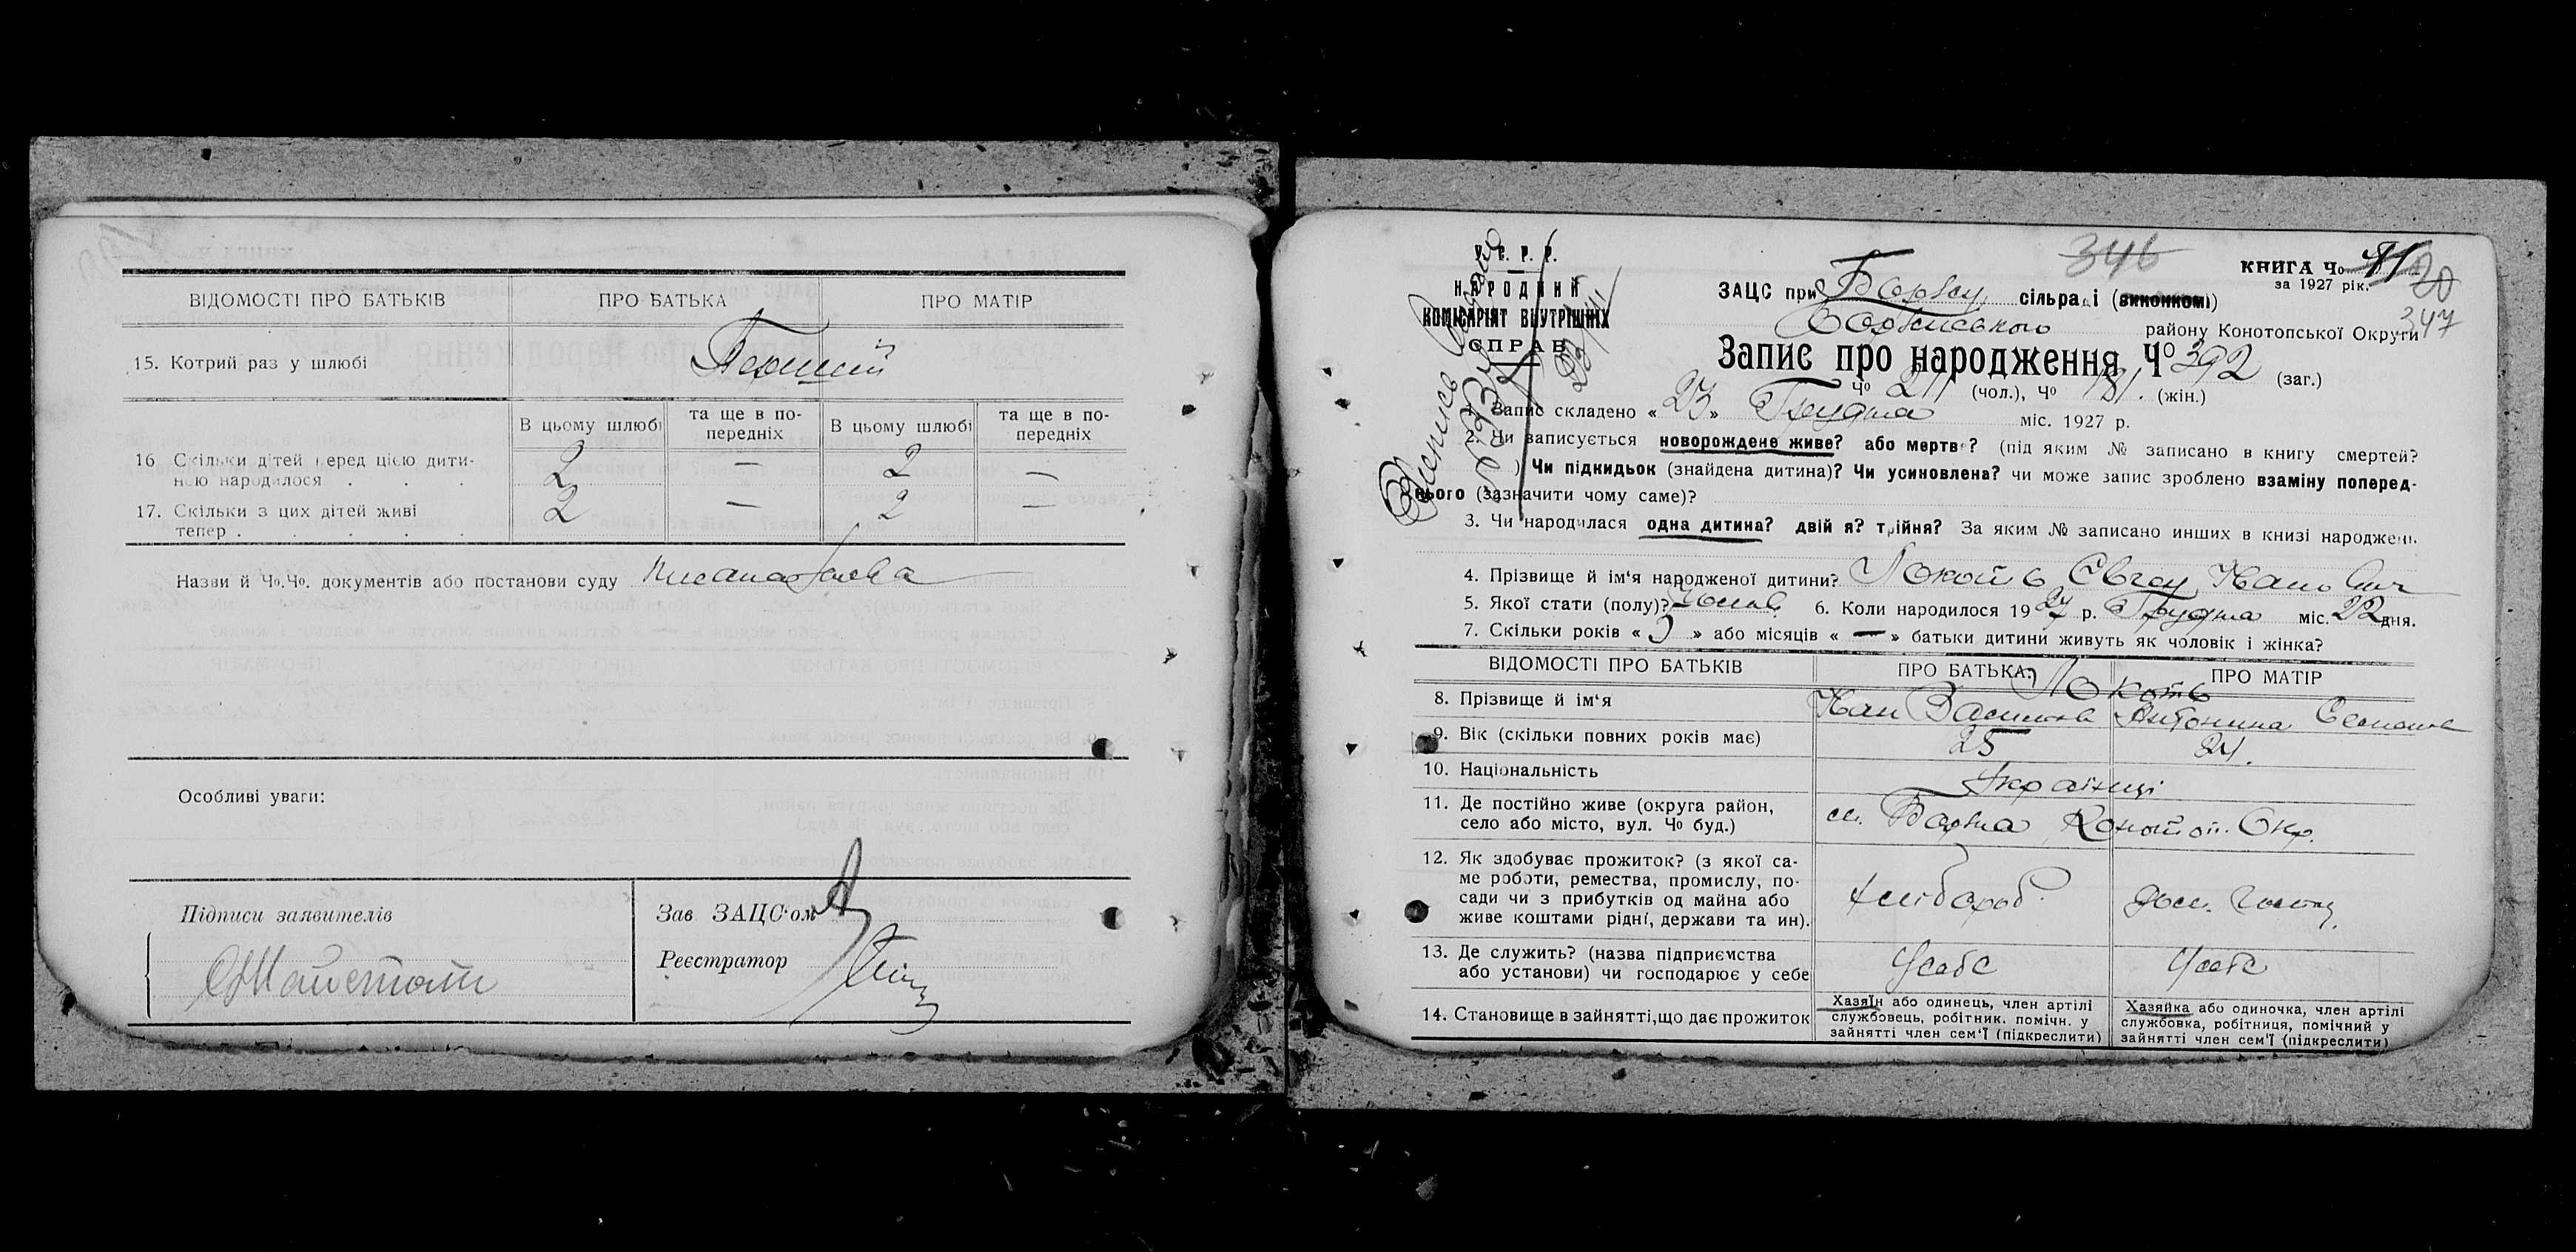 ВІДОМОСТІ ПРО БАТЬКІВ ПРО БАТЬКА ПРО МАТІР
15. Котрий раз у шлюбі Перший
В цьому шлюбі та ще в по-передніх В цьому шлюбі та ще в по-передніх
16 Скільки дітей перед цією дити-
ною народилося . . . 2 — 2 —
17. Скільки з цих дітей живі
тепер . . . . . 2 — 2 —
Назви й Чо.Чо. документів або постанови суду
Особливі уваги:
Підписи заявителів
Зав ЗАЦС‘ом
Реєстратор
У. С. Р. Р.
НАРОДНИЙ
КОМІСАРІЯТ ВНУТРІШНІХ
СПРАВ
346
КНИГА Чо
за 1927 рік.
347
ЗАЦС при Борзн. сільраді (виконкомі)
Борзенського району Конотопської Округи
Запис про народження Чо 392 (заг.)
Чо 211 (чол.), Чо 181. (жін.)
1. Запис складено « 23 » Грудня міс. 1927 р.
2. Чи записується новорождене живе? або мертве? (під яким № записано в книгу смертей?
) Чи підкидьок (знайдена дитина)? Чи усиновлена? чи може запис зроблено взаміну поперед-
нього (зазначити чому саме)?
3. Чи народилася одна дитина? двійня? трійня? За яким № записано инших в книзі народжень.
4. Прізвище й ім‘я народженої дитини? Локоть Євген Іванович
5. Якої стати (полу)? Чолов. 6. Коли народилося 1927 р. Грудня міс. 22 дня.
7. Скільки років « 3 » або місяців « — » батьки дитини живуть як чоловік і жінка?
ВІДОМОСТІ ПРО БАТЬКІВ ПРО БАТЬКА ПРО МАТІР
Локоть
8. Прізвище й ім‘я Іван Васильов Антонина Семенов
9. Вік (скільки повних років має) 25 24.
10. Національність Українці
11. Де постійно живе (округа район,
село або місто, вул. Чо буд.) м. Борзна Конотоп. Окр.
12. Як здобуває прожиток? (з якої са-
ме роботи, ремества, промислу, по-
сади чи з прибутків од майна або
живе коштами рідні, держави та ин). хлібороб. дом. господ.
13. Де служить? (назва підприємства
або установи) чи господарює у себе Усебе Усебе
14. Становище в зайнятті,що дає прожиток
Хазяїн або одинець, член артілі
службовець, робітник. помічн. у
зайнятті член сем‘ї (підкреслити)
Хазяйка або одиночка, член артілі
службовка, робітниця, помічний у
зайнятті член сем‘ї (підкреслити)